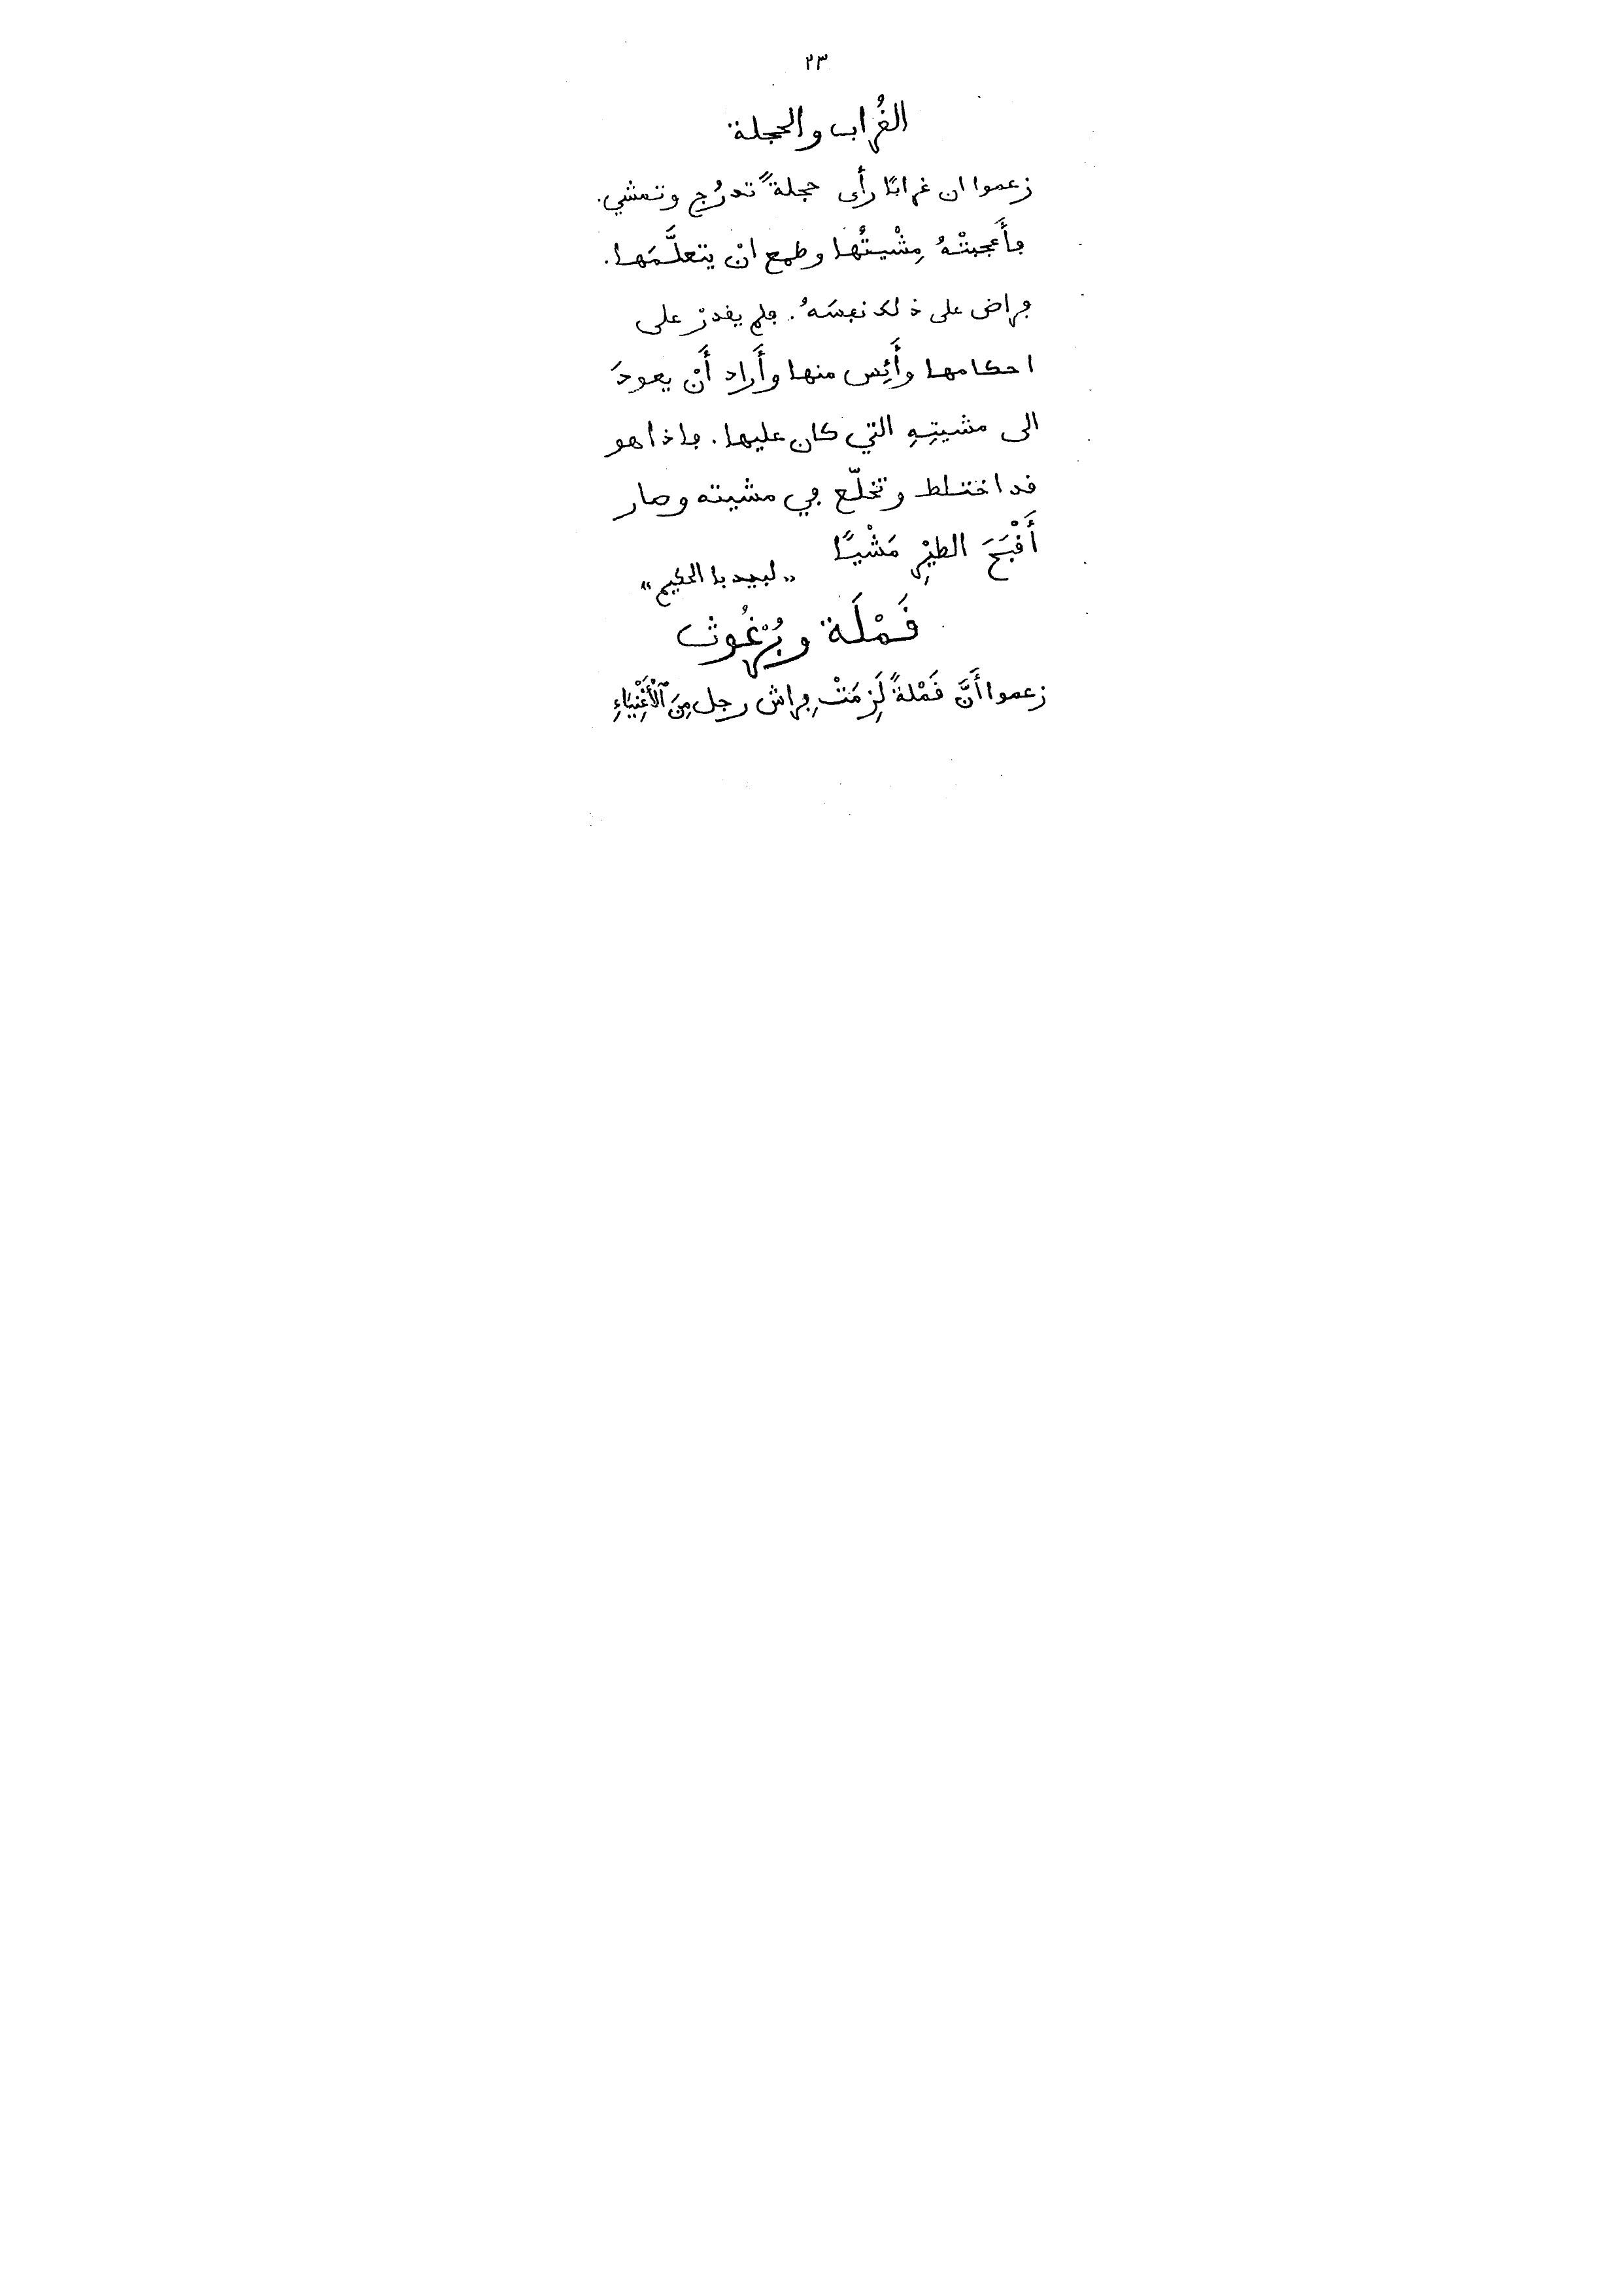 ٢٣
الغُراب والحجلة
زعموا ان غرابًا رأى حجلةً تدرُج وتمشي.
فأَعجبتْهُ مِشْيتُها وطمع انْ يتعلَّمَها.
فراض على ذلك نفسَهُ. فلم يقدرْ على
احكامها وأَئِس منها وأَراد أَنْ يعودَ
الى مشيتِهِ التي كان عليها. فاذا هو
قد اختلط وتخلّع في مشيته وصار
أَقْبَحَ الطيْرِ مَشْيًا
„لبيدبا الحكيم“
قَمْلَة وبُرْغُوث
زعموا أَنَّ قَمْلةً لَزِمَتْ فِراش رجل مِنَ ٱلْأَغْنِيَاءِ